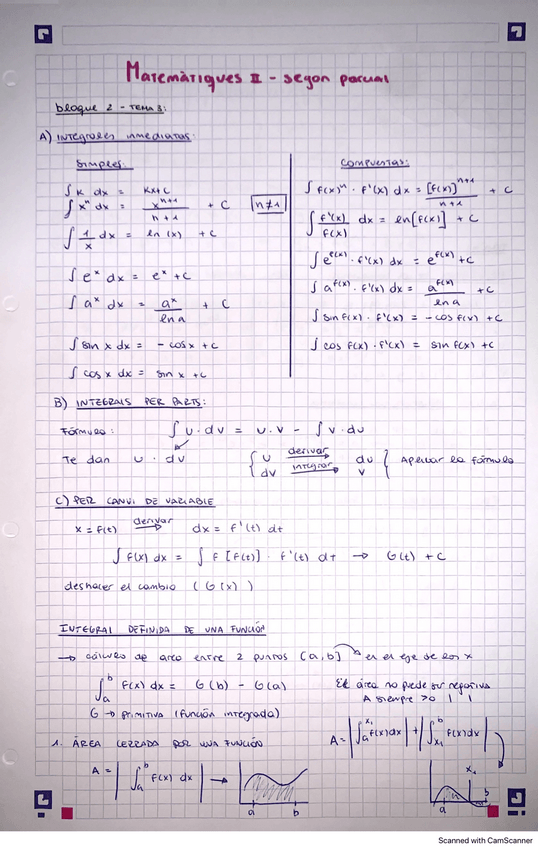 Matemàtiques II - segon parcial
bloque 2 - TEMA 3:
A) INTEGRALES INMEDIATAS:
SIMPLES:
∫ K dx = Kx + C
∫ xⁿ dx = xⁿ⁺¹ / n+1 + C   n≠1
∫ 1/x dx = ln (x) + C
∫ eˣ dx = eˣ + C
∫ aˣ dx = aˣ / ln a + C
∫ sin x dx = - cos x + C
∫ cos x dx = sin x + C
COMPUESTAS:
∫ f(x)ⁿ · f'(x) dx = [f(x)]ⁿ⁺¹ / n+1 + C
∫ f'(x) / f(x) dx = ln [f(x)] + C
∫ e^f(x) · f'(x) dx = e^f(x) + C
∫ a^f(x) · f'(x) dx = a^f(x) / ln a + C
∫ sin f(x) · f'(x) = - cos f(x) + C
∫ cos f(x) · f'(x) = sin f(x) + C
B) INTEGRALS PER PARTS:
Fórmula: ∫ u · dv = u · v - ∫ v · du
Te dan u · dv { u derivar → du
dv integrar → v } Aplicar la fórmula
C) PER CANVI DE VARIABLE
x = f(t) derivar → dx = f'(t) dt
∫ f(x) dx = ∫ f [f(t)] · f'(t) dt → G(t) + C
deshacer el cambio ( G(x) )
INTEGRAL DEFINIDA DE UNA FUNCIÓN
→ cálculo de area entre 2 puntos [a, b] → en el eje de los x
∫ₐᵇ f(x) dx = G(b) - G(a)
G → primitiva (función integrada)
El área no puede ser negativa
A siempre >0 | |
1. ÁREA CERRADA POR UNA FUNCIÓN
A = | ∫ₐˣ¹ f(x) dx | + | ∫ₓ₁ᵇ f(x) dx |
A = | ∫ₐᵇ f(x) dx | →
a b
x₁
a b
Scanned with CamScanner